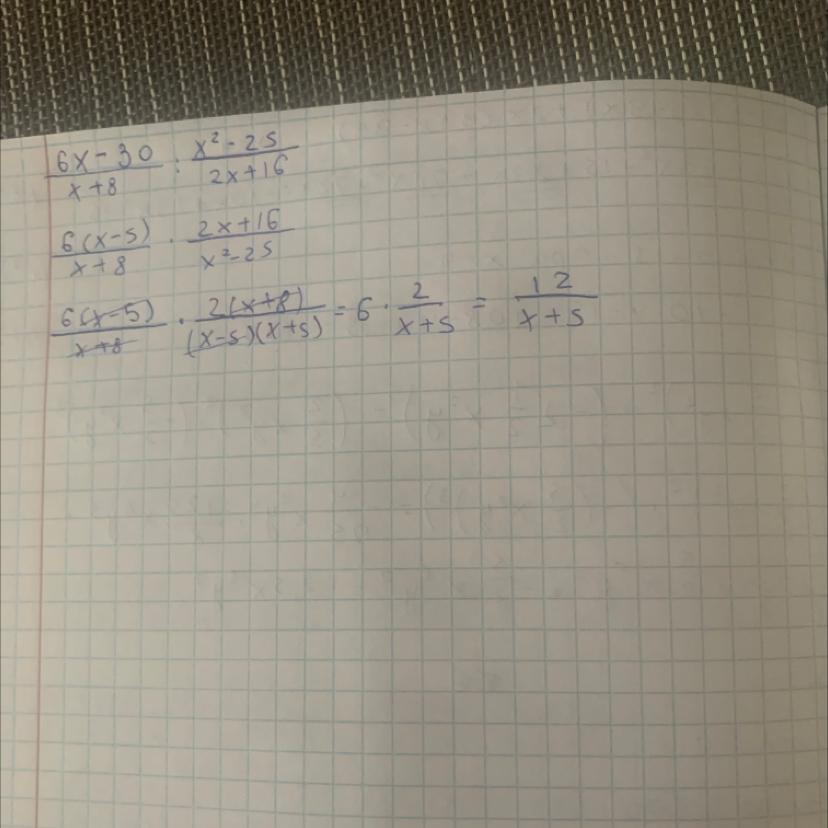 (6x-30)/(x+8) : (x²-25)/(2x+16)
6(x-5)/(x+8) · (2x+16)/(x²-25)
6(x-5)/(x+8) · 2(x+8)/((x-5)(x+5)) = 6 · 2/(x+5) = 12/(x+5)